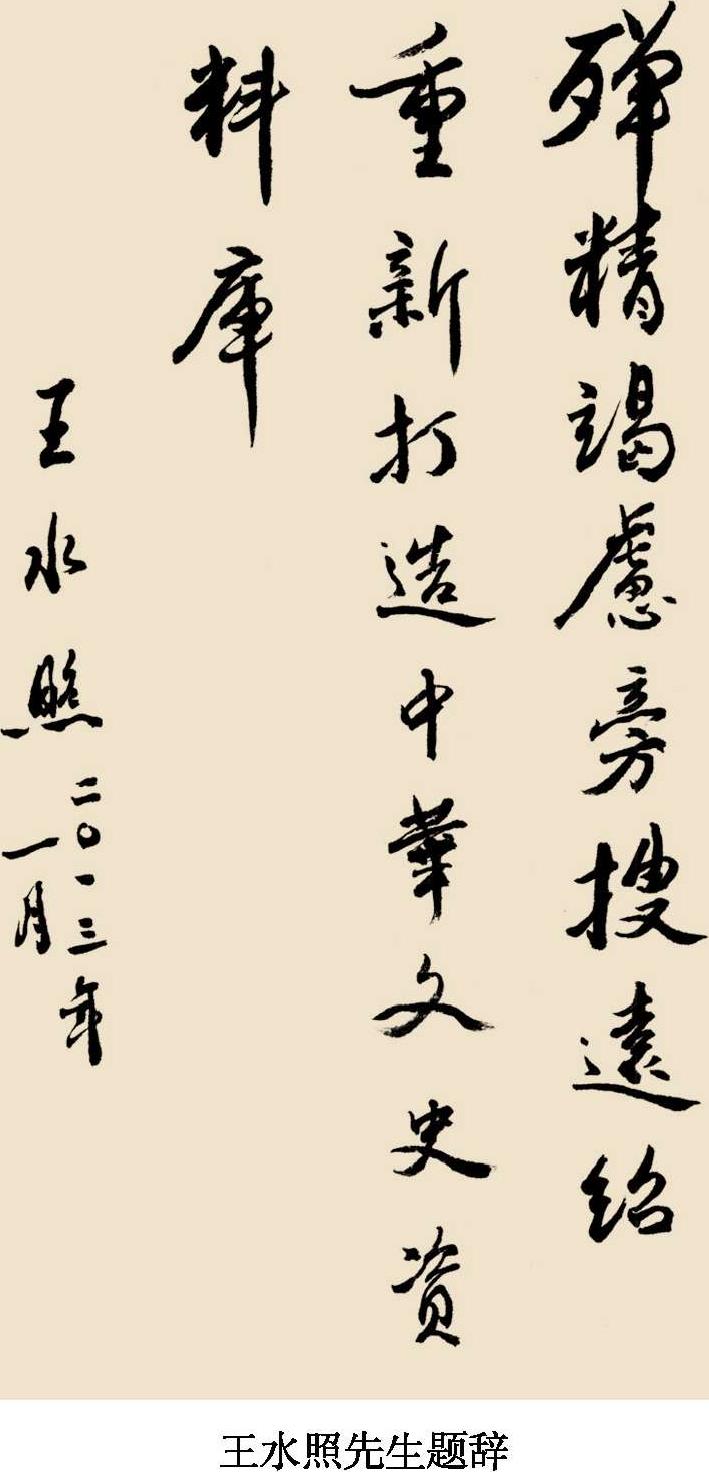 殫精竭慮旁搜遠紹
重新打造中華文史资
料庫
王水照
二〇一三年
一月
王水照先生题辞